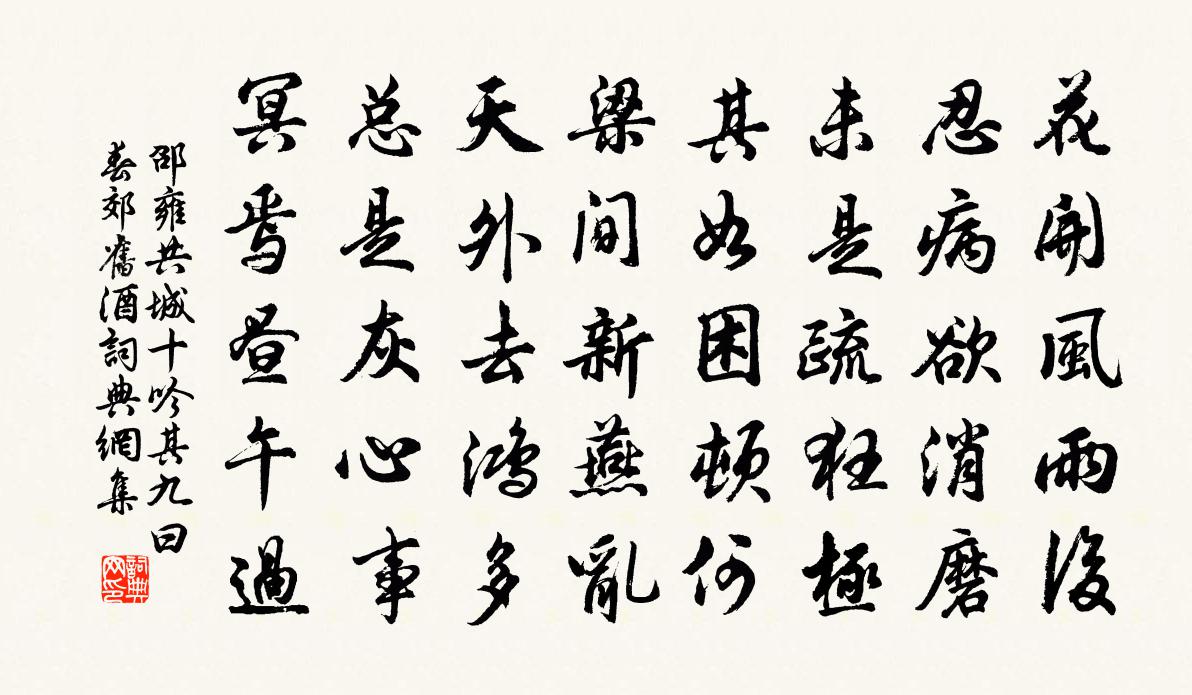 花開風雨後
忍病欲消磨
未是疏狂極
其如困頓何
梁间新燕亂
天外去鸿多
总是灰心事
冥焉昼午過
邵雍共城十吟其九曰
春郊舊酒詞典網集
詞典网印